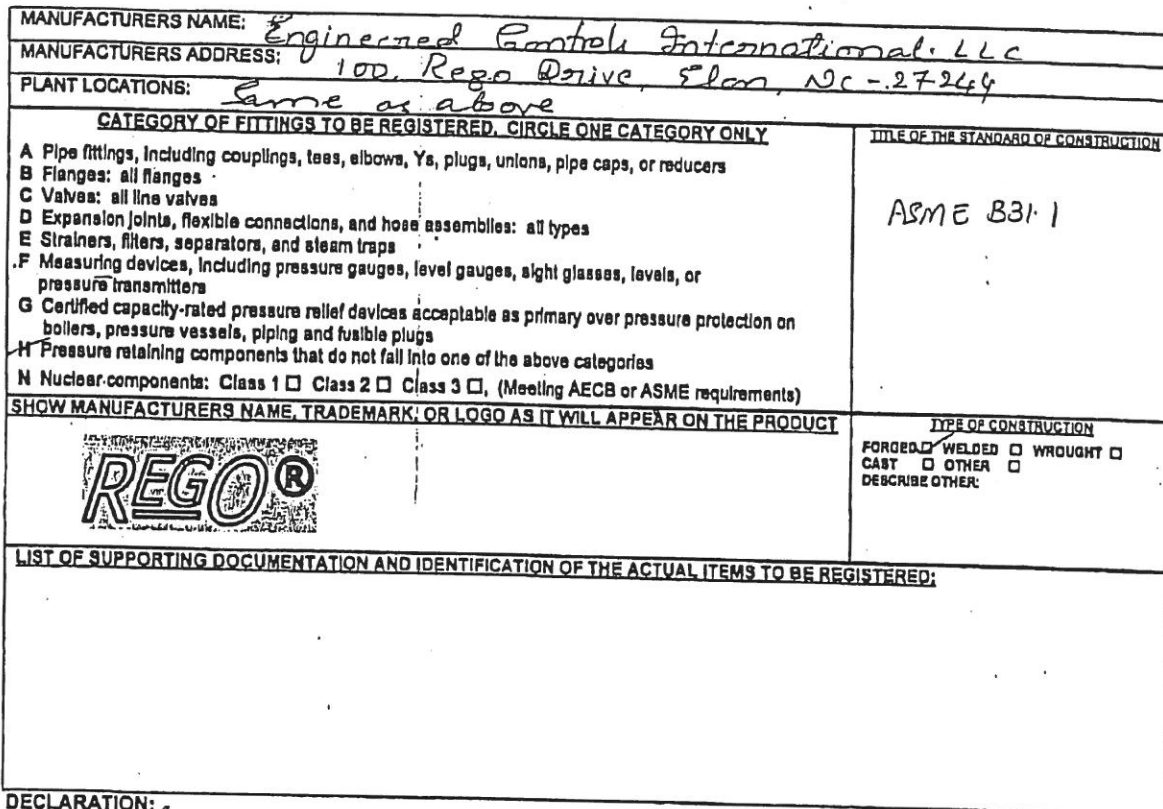 MANUFACTURERS NAME: Engineered Controls International. LLC
MANUFACTURERS ADDRESS: 100, Rego Drive, Elon, NC -.27244
PLANT LOCATIONS: Same as above
CATEGORY OF FITTINGS TO BE REGISTERED, CIRCLE ONE CATEGORY ONLY
A Pipe fittings, including couplings, tees, elbows, Ys, plugs, unions, pipe caps, or reducers
B Flanges: all flanges
C Valves: all line valves
D Expansion joints, flexible connections, and hose assemblies: all types
E Strainers, filters, separators, and steam traps
F Measuring devices, including pressure gauges, level gauges, sight glasses, levels, or
pressure transmitters
G Certified capacity-rated pressure relief devices acceptable as primary over pressure protection on
boilers, pressure vessels, piping and fusible plugs
H Pressure retaining components that do not fall into one of the above categories
N Nuclear components: Class 1 □ Class 2 □ Class 3 □, (Meeting AECB or ASME requirements)
TITLE OF THE STANDARD OF CONSTRUCTION
ASME B31.1
SHOW MANUFACTURERS NAME, TRADEMARK, OR LOGO AS IT WILL APPEAR ON THE PRODUCT
REGO®
TYPE OF CONSTRUCTION
FORGED □ WELDED □ WROUGHT □
CAST □ OTHER □
DESCRIBE OTHER:
LIST OF SUPPORTING DOCUMENTATION AND IDENTIFICATION OF THE ACTUAL ITEMS TO BE REGISTERED:
DECLARATION: